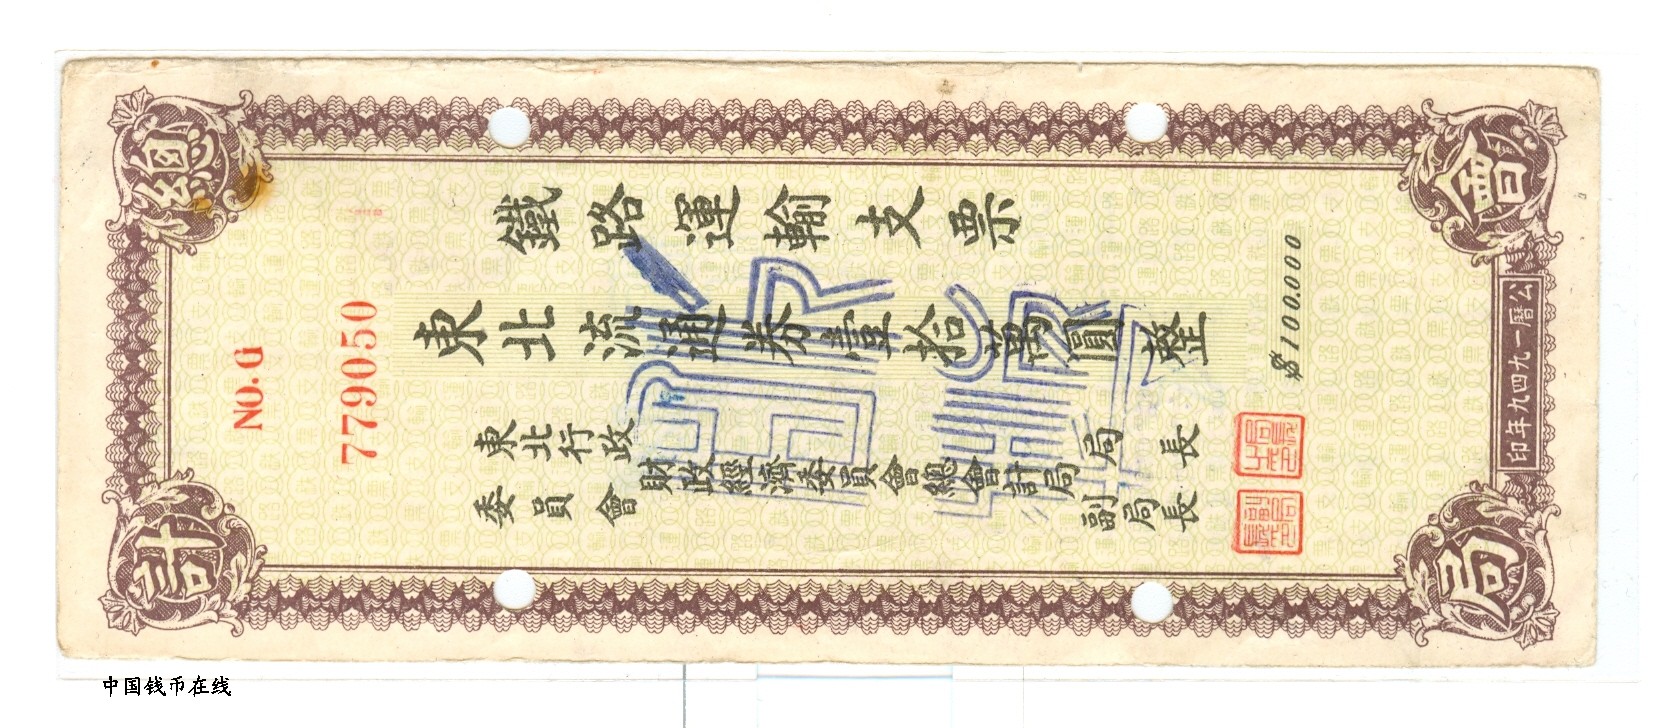 總會計局
鐵路運輸支票
東北流通券壹拾萬圓整
$100.000
NO. G
779050
東北行政
委員會
財政經濟委員會總會計局
局長
副局長
公曆一九四九年印
中国钱币在线